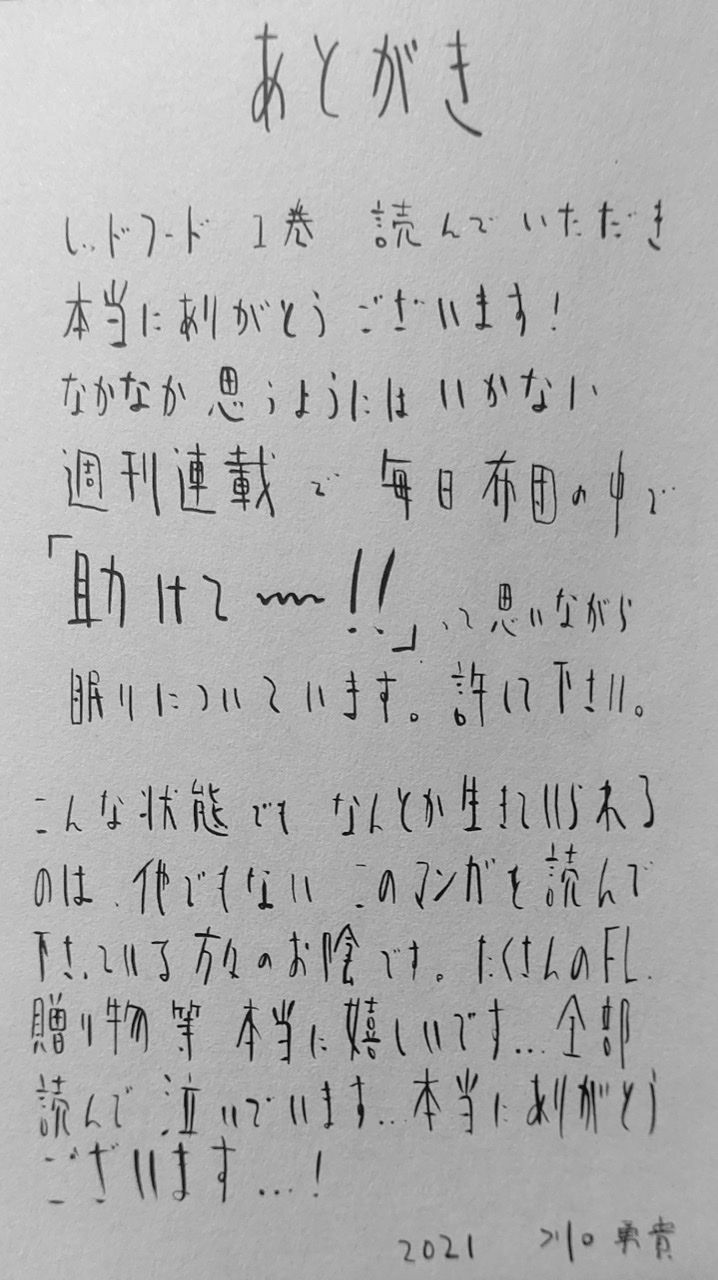 あとがき
レッドフード 1巻 読んでいただき
本当にありがとうございます!
なかなか思うようにはいかない
週刊連載で 毎日布団の中で
「助けて〜!!」って思いながら
眠りについています。許して下さい。
こんな状態でも なんとか生きていられる
のは、他でもない このマンガを読んで
下さっている方々のお陰です。たくさんのFL、
贈り物等 本当に嬉しいです…全部
読んで泣いています…本当にありがとう
ございます…!
2021 川口勇貴